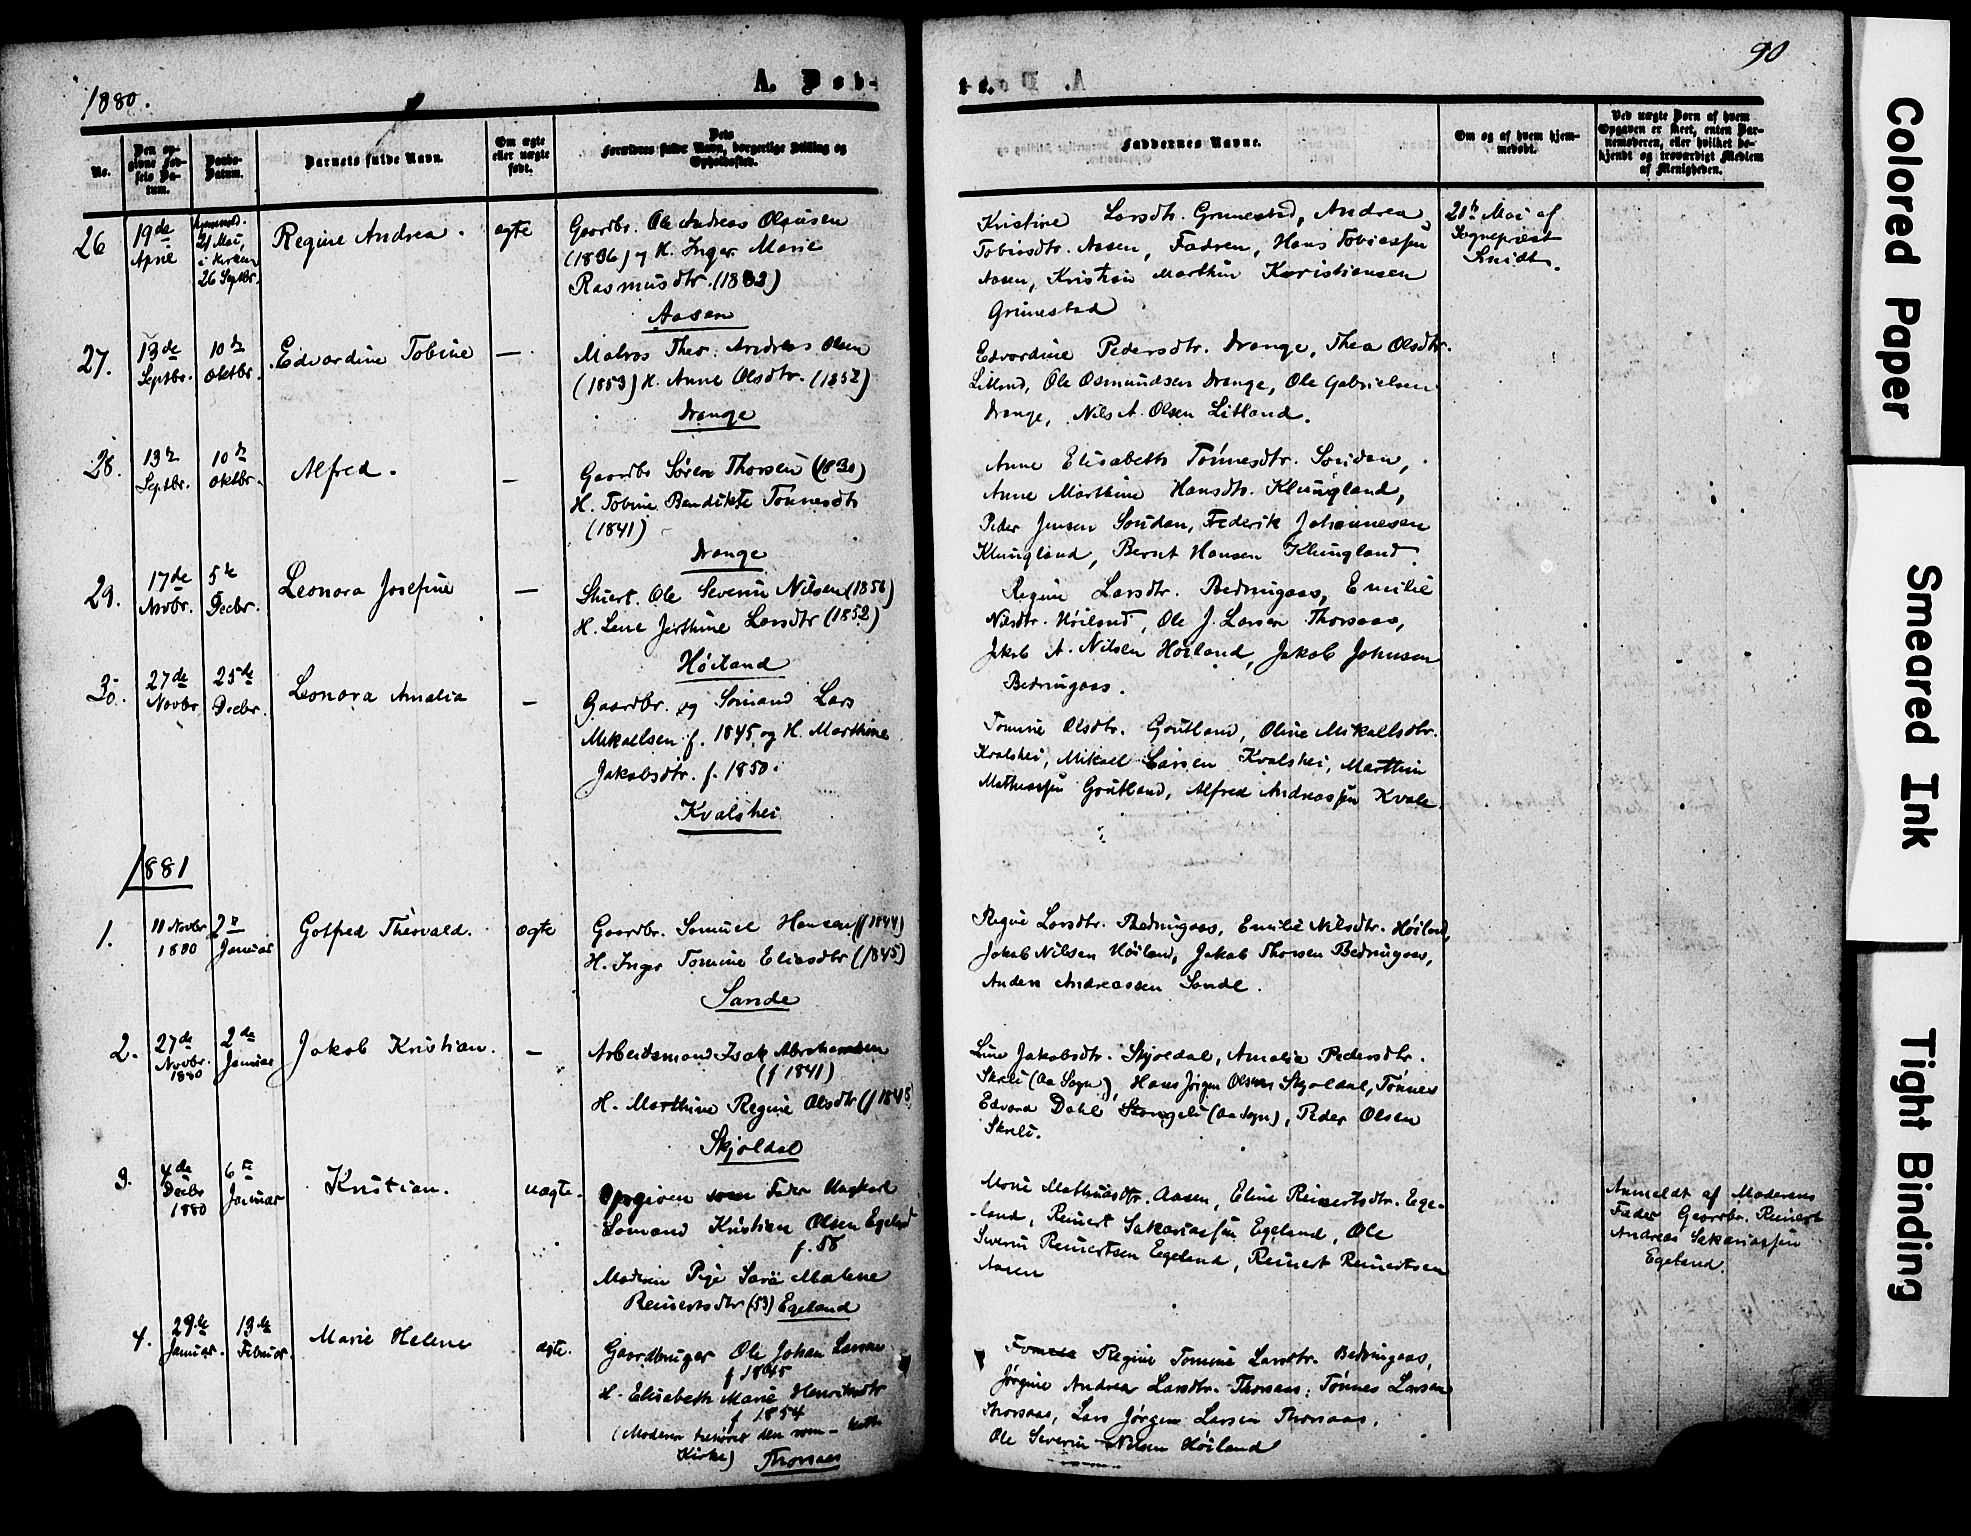 1880.
A. Døb-
te.
90
No.
Den op-
givne Fød-
sels Da-
tum.
Daabs-
Datum.
Barnets fulde Navn.
Om ægte
eller uægte
født.
Dets
Forældres fulde Navn, borgerlige Stilling og
Opholdssted.
Faddernes Navne.
Om og af hvem hjem-
medøbt.
Ved uægte Børn af hvem
Opgaven er skeet, enten Bar-
nemoderen, eller hvilket be-
kjendt og troværdigt Medlem
af Menigheden.
26
19de
April
21 Mai,
i Kirken
26 Septbr.
Regine Andrea.
ægte
Gaardbr. Ole Andreas Olausen
(1836) og H. Inger Marie
Rasmusdtr. (1833)
Aasen
Kristine Larsdtr. Grimestad, Andrea
Tobiasdtr. Aasen, Fadren, Hans Tobiassen
Aasen, Kristian Marthin Kristiansen
Grimestad
21de Mai af
Sognepræst
Smidt.
27.
13de
Septbr.
10de
Oktbr.
Edvardine Tobine
—
Matros Theo. Andreas Olsen
(1853) H. Anne Olsdtr. (1852)
Drange
Edvardine Pedersdtr. Drange, Thea Olsdtr.
Litland, Ole Osmundsen Drange, Ole Gabrielsen
Drange, Nils A. Olsen Litland.
28.
13de
Septbr.
10de
Oktbr.
Alfred.
—
Gaardbr Sören Thorsen (1830)
H. Tobine Bendikte Tönnesdtr
(1841)
Drange
Anne Elisabeth Tönnesdtr. Soudan,
Anne Marthine Hansdtr. Klungland,
Peder Jensen Soudan, Frederik Johannesen
Klungland, Bernt Hansen Klungland.
29.
17de
Novbr.
5te
Decbr.
Leonora Josefine
—
Ole Severin Nilsen (1856)
H. Lene Jerthine Larsdtr (1852)
Höiland
Regine Larsdtr. Bedringaas, Emilie
Nilsdtr. Höiland, Ole J. Larsen Thorsaas,
Jakob A. Nilsen Höiland, Jakob Johnsen
Bedringaas.
30.
27de
Novbr.
25de
Decbr.
Leonora Amalia
—
Gaardbr. og Sömand Lars
Mikaelsen f. 1845, og H. Marthine
Jakobsdtr. f. 1850.
Kvalshei.
Tomine Olsdtr. Goutland, Oline Mikaelsdtr.
Kvalshei, Mikael Larsen Kvalshei, Marthin
Mathiassen Goutland, Alfred Andreassen Kvale
1881
1.
11 Novbr
1880
2de
Januar
Gotfred Theovald.
ægte
Gaardbr. Samuel Hansen (f 1844)
H. Inger Tomine Eliasdtr (1845)
Sande
Regine Larsdtr. Bedringaas, Emilie Nilsdtr. Höiland,
Jakob Nilsen Höiland, Jakob Thorsen Bedringaas,
Anders Andreassen Sande.
2.
27de
Novbr.
1880
2de
Januar
Jakob Kristian.
—
Arbeidsmand Isak Abrahamsen
(f 1841)
H. Marthine Regine Olsdtr (f 1845)
Skjoldal
Line Jakobsdtr. Skjoldal, Amalia Pedersdtr.
Skreli (Aa Sogn), Hans Jörgen Olsen Skjoldal, Tönnes
Edvard Dahl (Aa Sogn), Peder Olsen
Skreli.
3.
4de
Decbr
1880
6te
Januar
Kristian.
uægte.
Opgiven som Fader Ungkarl
Sömand Kristian Olsen Egeland
f. 58
Moderen Pige Sara Malene
Reinertsdtr (53) Egeland
Marie Mathiasdtr. Aasen, Eline Reinertsdtr. Ege-
land, Reinert Sakariassen Egeland, Ole
Severin Reinertsen Egeland, Reinert Reinertsen
Aasen
Anmeldt af Moderens
Fader Gaardbr. Reinert
Andreas Sakariassen
Egeland.
4.
29de
Januar.
13de
Februar.
Marie Helene
ægte.
Gaardbruger Ole Johan Larsen
f 1845
H. Elisabeth Marie Henriksdtr
f 1854
(Moderen tilhører den rom-kath
Kirke) Thorsaas
Regine Tomine Larsdtr. Bedringaas,
Jørgine Andrea Larsdtr. Thorsaas, Tönnes Larsen
Thorsaas, Lars Jörgen Larsen Thorsaas,
Ole Severin Nilsen Höiland
Colored Paper
Smeared Ink
Tight Binding